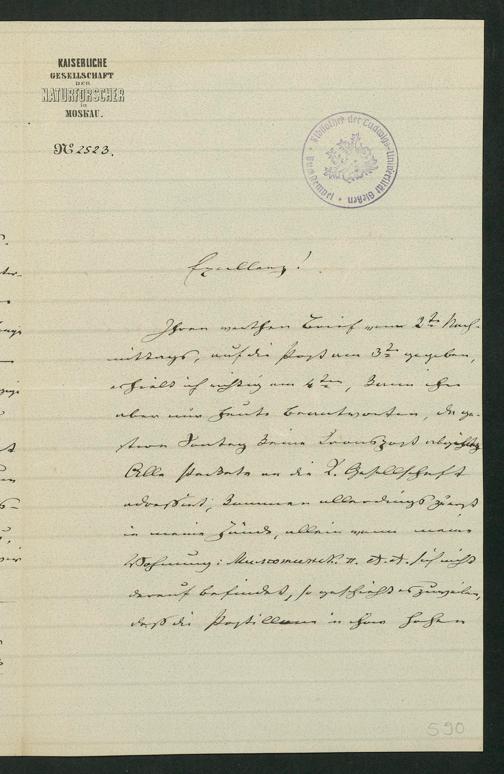 KAISERLICHE
GESELLSCHAFT
DER
NATURFORSCHER
in
MOSKAU.
№ 2523.
Bibliothek der Ludwigs-Universität Gießen
Excellenz!
Ihren werthen Brief vom 2ten Nach-
mittags, auf die Post am 3ten gegeben,
erhielt ich richtig am 4ten, kann ihn
aber nur heute beantworten, da ge-
stern Sontag keine
Alle Packete an die K. Gesellschaft
adressirt, kommen allerdings zuerst
in meine Hände, allein wenn meine
Wohnung: sich nicht
darauf befindet, so geschieht es zuweilen,
daß die Postillione in ihrer hohen
590